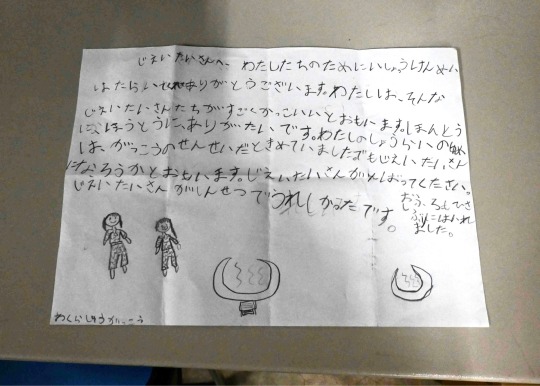 じえいたいさんへ、わたしたちのためにいしょうけんめい
はたらいてくれありがとうございます。わたしは、そんな
じえいたいさんたちがすごくかっこいいとおもいます。ほんとう
にほうとうに、ありがたいです。わたしのしょうらいのゆめ
は、がっこうのせんせいだときめていましたでもじえいたいさん
になろうかとおもいます。じえいたいさんがんばってください。
じえいたいさんがしんせつでうれしかったです。
おふろもひさ
ぶりにはいれ
ました。
わくらしょうがっこう